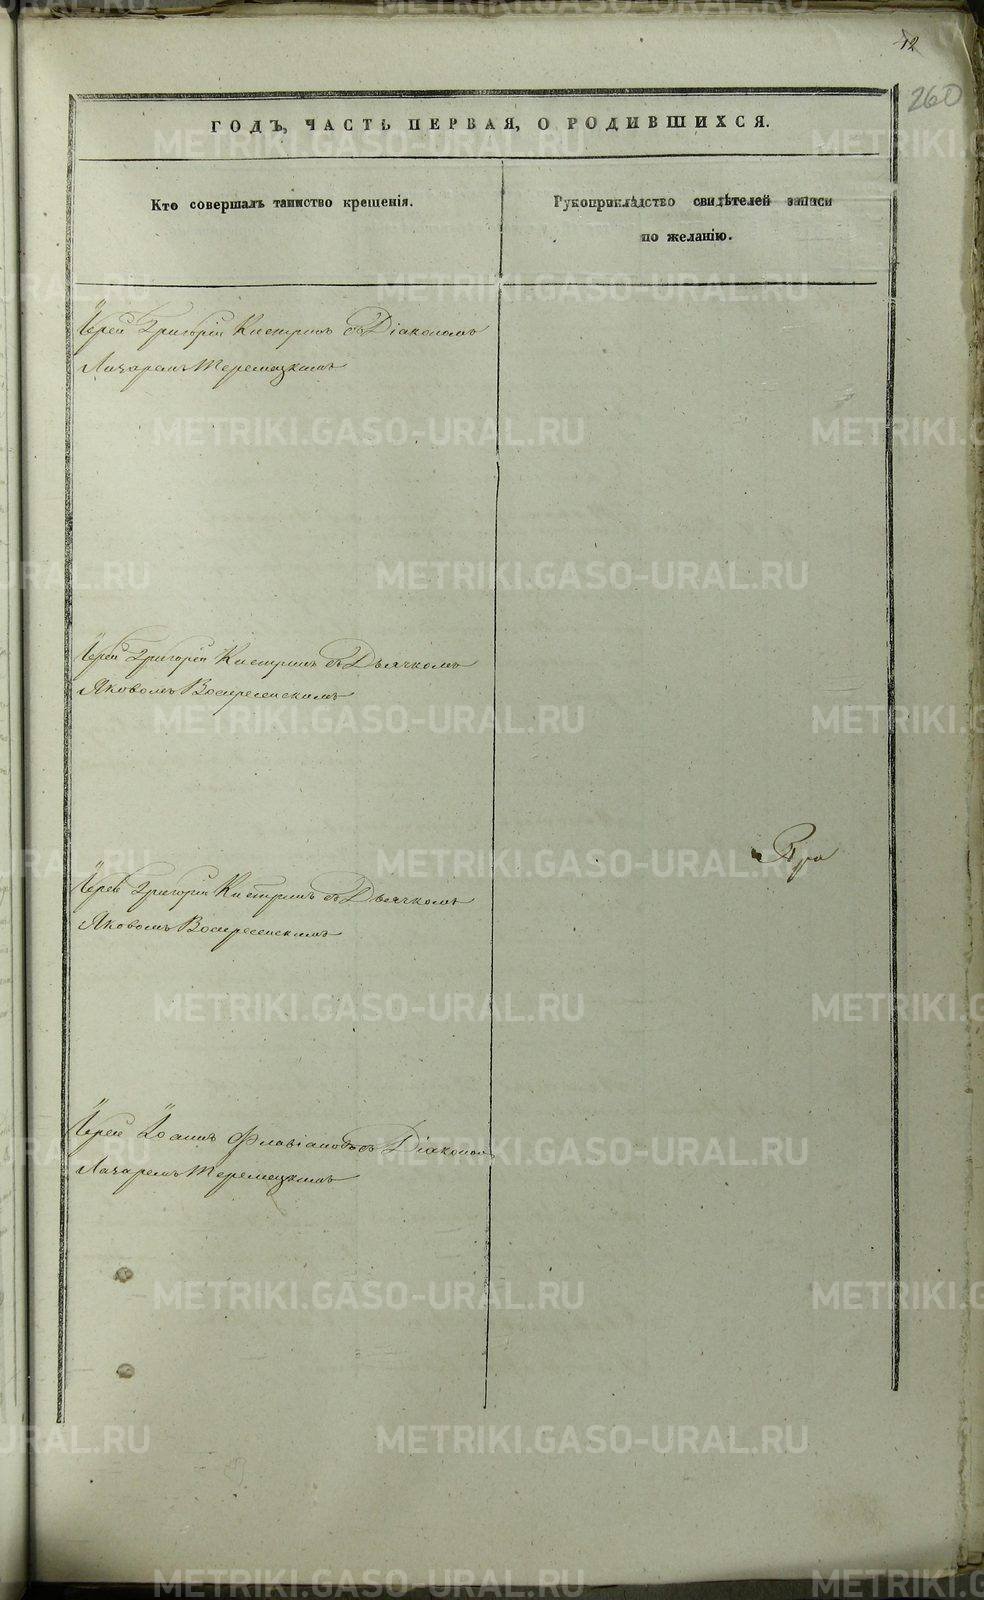 12
260
ГОДЪ, ЧАСТЬ ПЕРВАЯ, О РОДИВШИХСЯ.
Кто совершалъ таинство крещенія.
Рукоприкладство свидѣтелей записи
по желанію.
Іерей Григорій Кистринъ съ Діакономъ
Лазаремъ Теремецкимъ
Іерей Григорій Кистринъ съ Дьячкомъ
Яковомъ Воскресенскимъ
Пра
Іерей Григорій Кистринъ съ Дьячкомъ
Яковомъ Воскресенскимъ
Іерей Іоаннъ Флавіановъ съ Діакономъ
Лазаремъ Теремецкимъ
METRIKI.GASO-URAL.RU